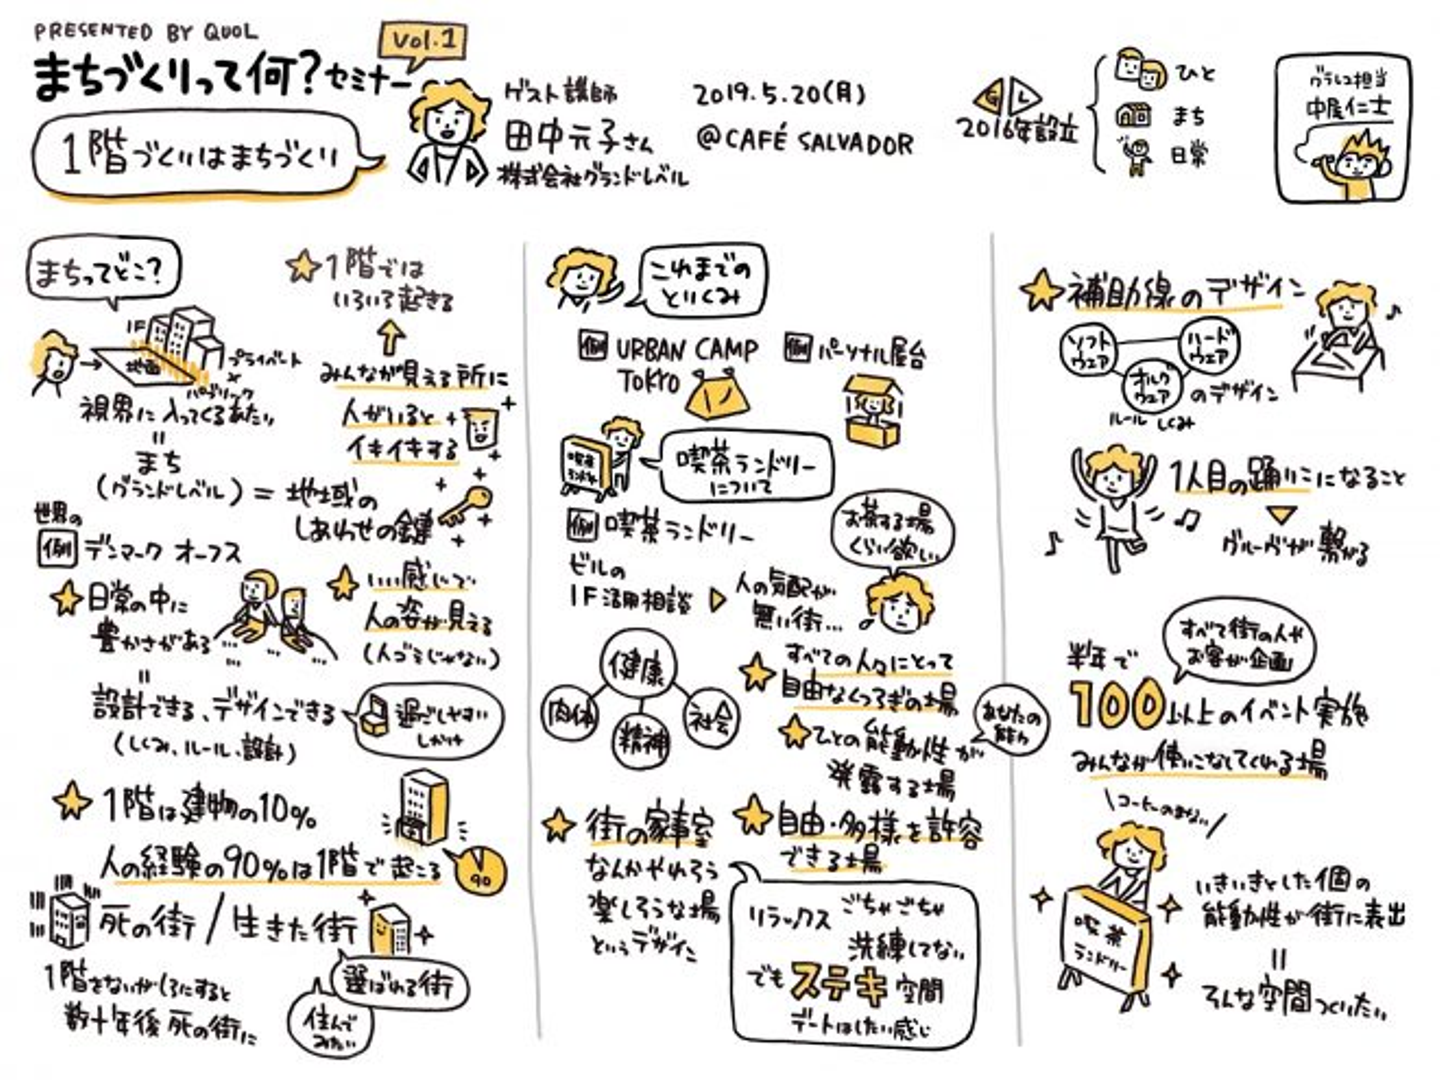 PRESENTED BY QUOL
まちづくりって何?セミナー
vol.1
1階づくりはまちづくり
ゲスト講師
田中元子さん
株式会社グランドレベル
2019.5.20(月)
@CAFÉ SALVADOR
G L
2016年設立
ひと
まち
日常
グラレコ担当
中尾仁士
まちってどこ?
1F
地面
プライベート
×
パブリック
視界に入ってくるあたり
=
まち
(グランドレベル)=地域の
しあわせの鍵
1階では
いろいろ起きる
みんなが見える所に
人がいると
イキイキする
世界の
例 デンマーク オーフス
日常の中に
豊かさがある
=
設計できる、デザインできる
(しくみ、ルール、設計)
いい感じで
人の姿が見える
(人ゴミじゃない)
過ごしやすい
しかけ
1階は建物の10%
人の経験の90%は1階で起こる
90
死の街/生きた街
選ばれる街
住んで
みたい
1階をないがしろにすると
数十年後 死の街に
これまでの
とりくみ
例 URBAN CAMP
TOKYO
例 パーソナル屋台
喫茶
ランドリー
喫茶ランドリー
について
例 喫茶ランドリー
ビルの
1F活用相談
人の気配が
無い街...
お茶する場
くらい欲しい
健康
肉体
精神
社会
すべての人々にとって
自由なくつろぎの場
ひとの能動性が
発露する場
あなたの
能力
街の家事室
なんかやれそう
楽しそうな場
というデザイン
自由・多様を許容
できる場
リラックス
ごちゃごちゃ
洗練してない
でもステキ空間
デートはしたい感じ
補助線のデザイン
ソフト
ウェア
ハード
ウェア
オルグ
ウェア
のデザイン
ルール しくみ
1人目の踊りこになること
グルーヴが繋がる
すべて街の人や
お客が企画
半年で
100以上のイベント実施
みんなが使いこなしてくれる場
コーヒーのまない
喫茶
ランドリー
いきいきとした個の
能動性が街に表出
=
そんな空間つくりたい